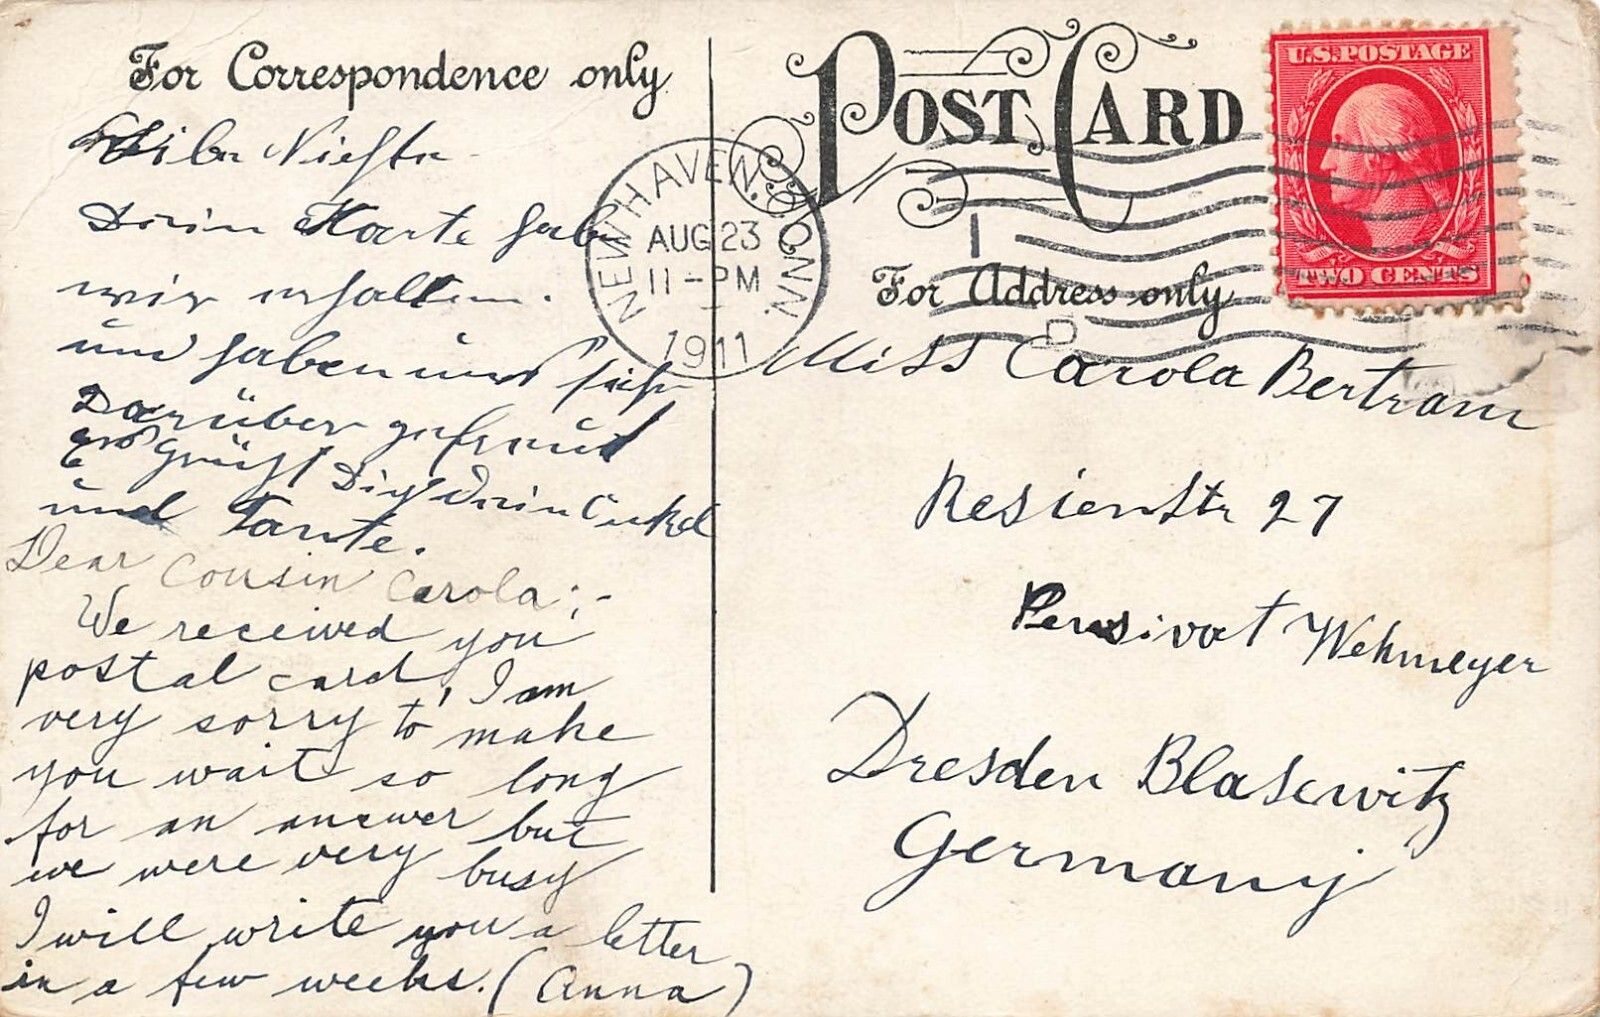 For Correspondence only
Liebe Nichte
Deine Karte habe
wir erhalten.
und haben uns sehr
darüber gefreut
es grüßt Dich Dein Onkel
und Tante.
Dear Cousin Carola;-
We received you
postal card, I am
very sorry to make
you wait so long
for an answer but
we were very busy
I will write you a letter
in a few weeks. (Anna)
POST CARD
NEW HAVEN, CONN.
AUG 23
11-PM
1911
U.S. POSTAGE
TWO CENTS
For Address only
Miss Carola Bertram
Residenstr 27
Pensivat Wehmeyer
Dresden Blasewitz
Germany